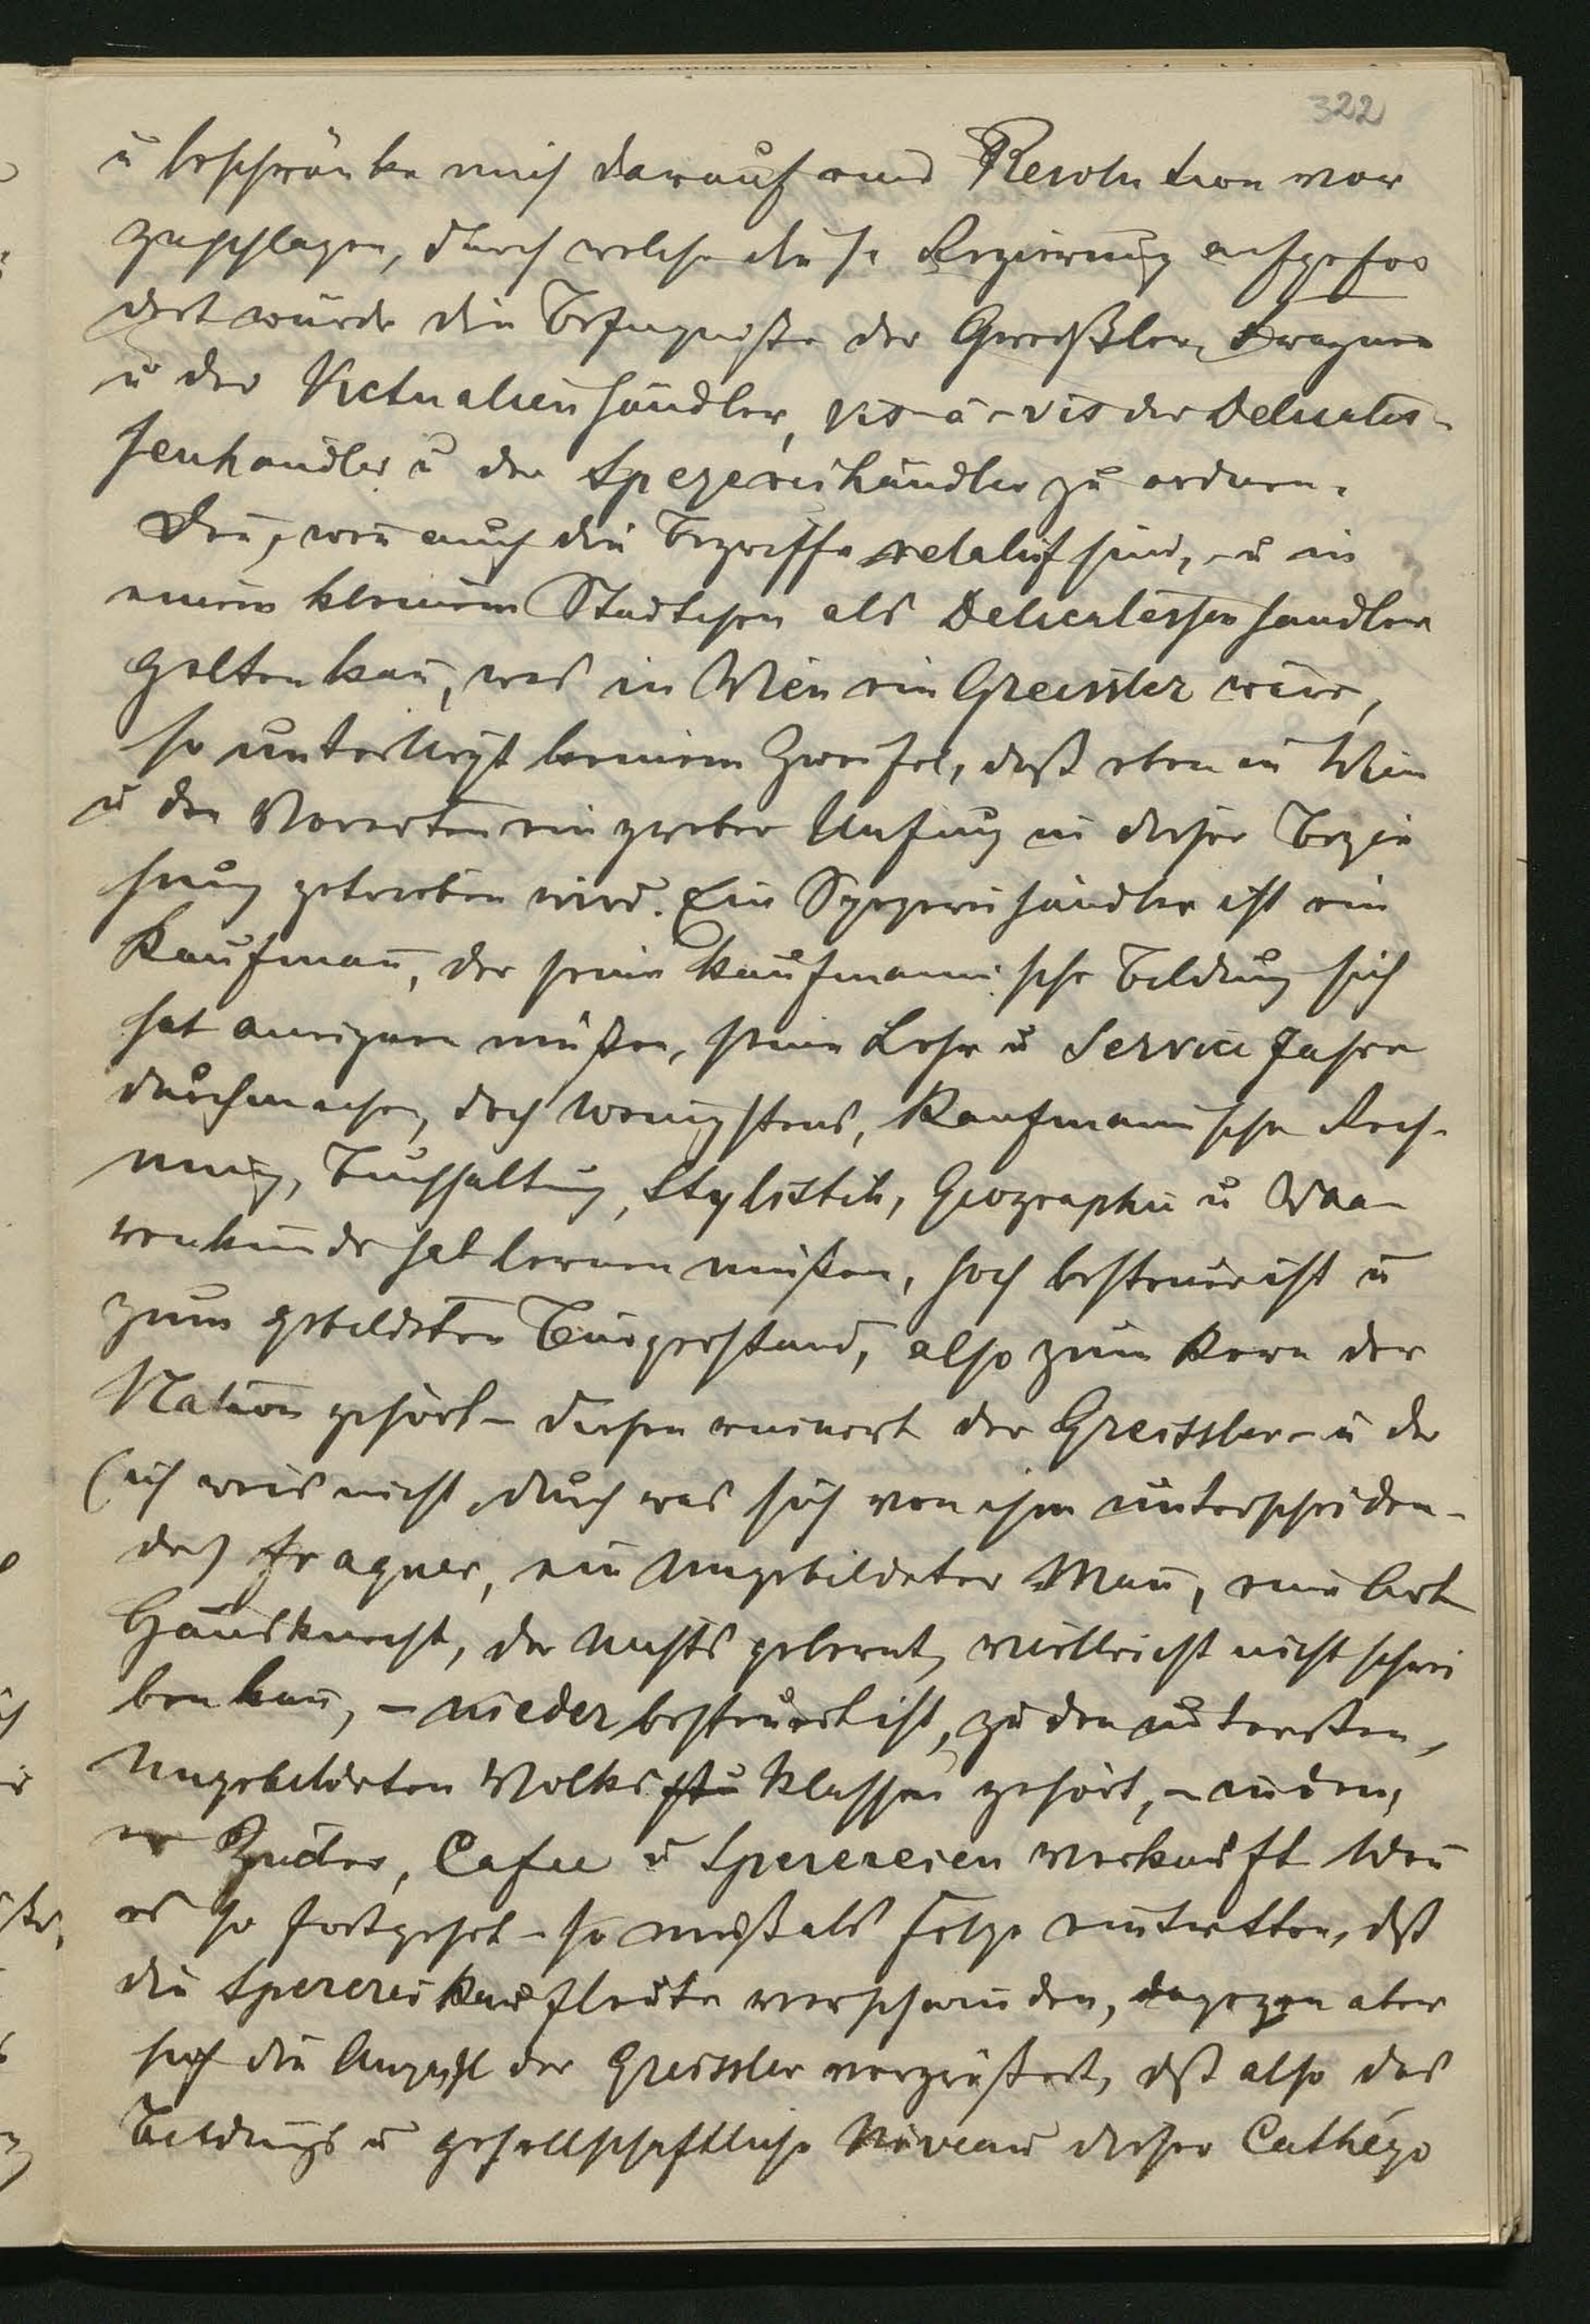 322
u beschränke mich darauf eine Resolution vor
zuschlagen, durch welche die h. Regierung aufgefor
dert würde die Befugniße der Greißler, Fragner
u der Victualienhändler, vis-à-vis der Delicates-
senhändler u der Spezereihändler zu ordnen.
Den, wen auch die Begriffe relatif sind, - u in
einem kleinem Stadtchen als Delicatessenhandler
gelten kan, was in Wien ein Greissler wäre,
so unterliegt keinem Zweifel, daß eben in Wien
u den Vororten ein grober Unfug in dieser Bezie
hung getrieben wird. Ein Spezereihändler ist ein
Kaufman, der seine kaufmannische Bildung sich
hat aneignen müßen, seine Lehr u Service Jahre
durchmachen, doch wenigstens, Kaufmannische Rech-
nung, Buchhaltung, Stylistik, Geographie u Waa-
renkunde hat lernen müßen, hoch besteuert ist u
zum gebildeten Bürgerstand, also zum Kern der
Nation gehört - diesen ruinirt der Greissler - u der
(ich weis nicht, durch was sich von ihm unterscheiden-
de) Fragner, ein Ungebildeter Man, eine Art
Hausknecht, der Nichts gelernt, vielleicht nicht schrei
ben kan, - nieder besteuert ist, zu den untersten,
Ungebildeten Volks Klassen gehört, - indem,
er Zucker, Cafee u Spezereien verkauft Wen
es so fortgehet - so muß als Folge eintretten, dß
die Spezereikaufleute verschwinden, dagegen aber
sich die Anzahl der Greissler vergrößert, dß also das
Bildungs u gesellschaftliche Niveau dieser Cathégo